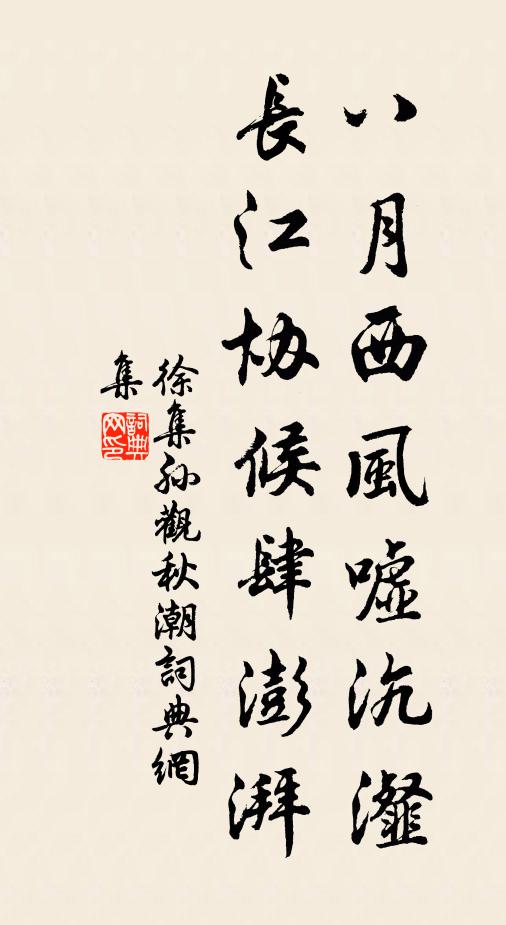 八月西風噓沆瀣
長江協候肆澎湃
徐集孫觀秋潮詞典網
集
詞典
网印